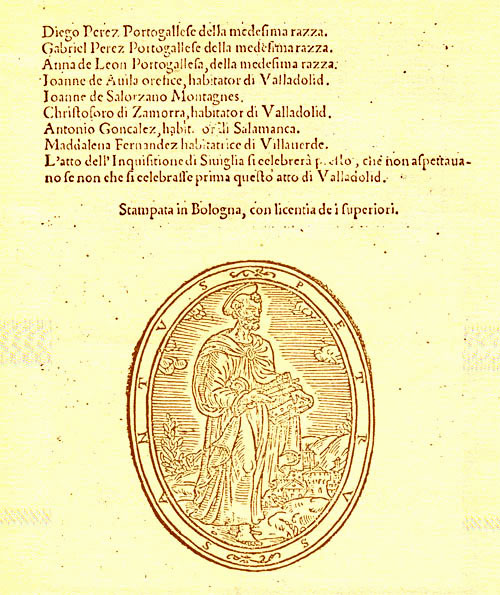 Diego Perez Portogallese della medesima razza.
Gabriel Perez Portogallese della medesima razza.
Anna de Leon Portogallesa, della medesima razza.
Joanne de Auila orefice, habitator di Valladolid.
Joanne de Salorzano Montagnes.
Christoforo di Zamorra, habitator di Valladolid.
Antonio Goncalez, habit. di Salamanca.
Maddalena Fernandez habitatrice di Villauerde.
L'atto dell'Inquisitione di Siuiglia si celebrerà che non aspettaua-
no se non che si celebrasse prima questo atto di Valladolid.
Stampata in Bologna, con licentia de i superiori.
SANTVS PETRVS